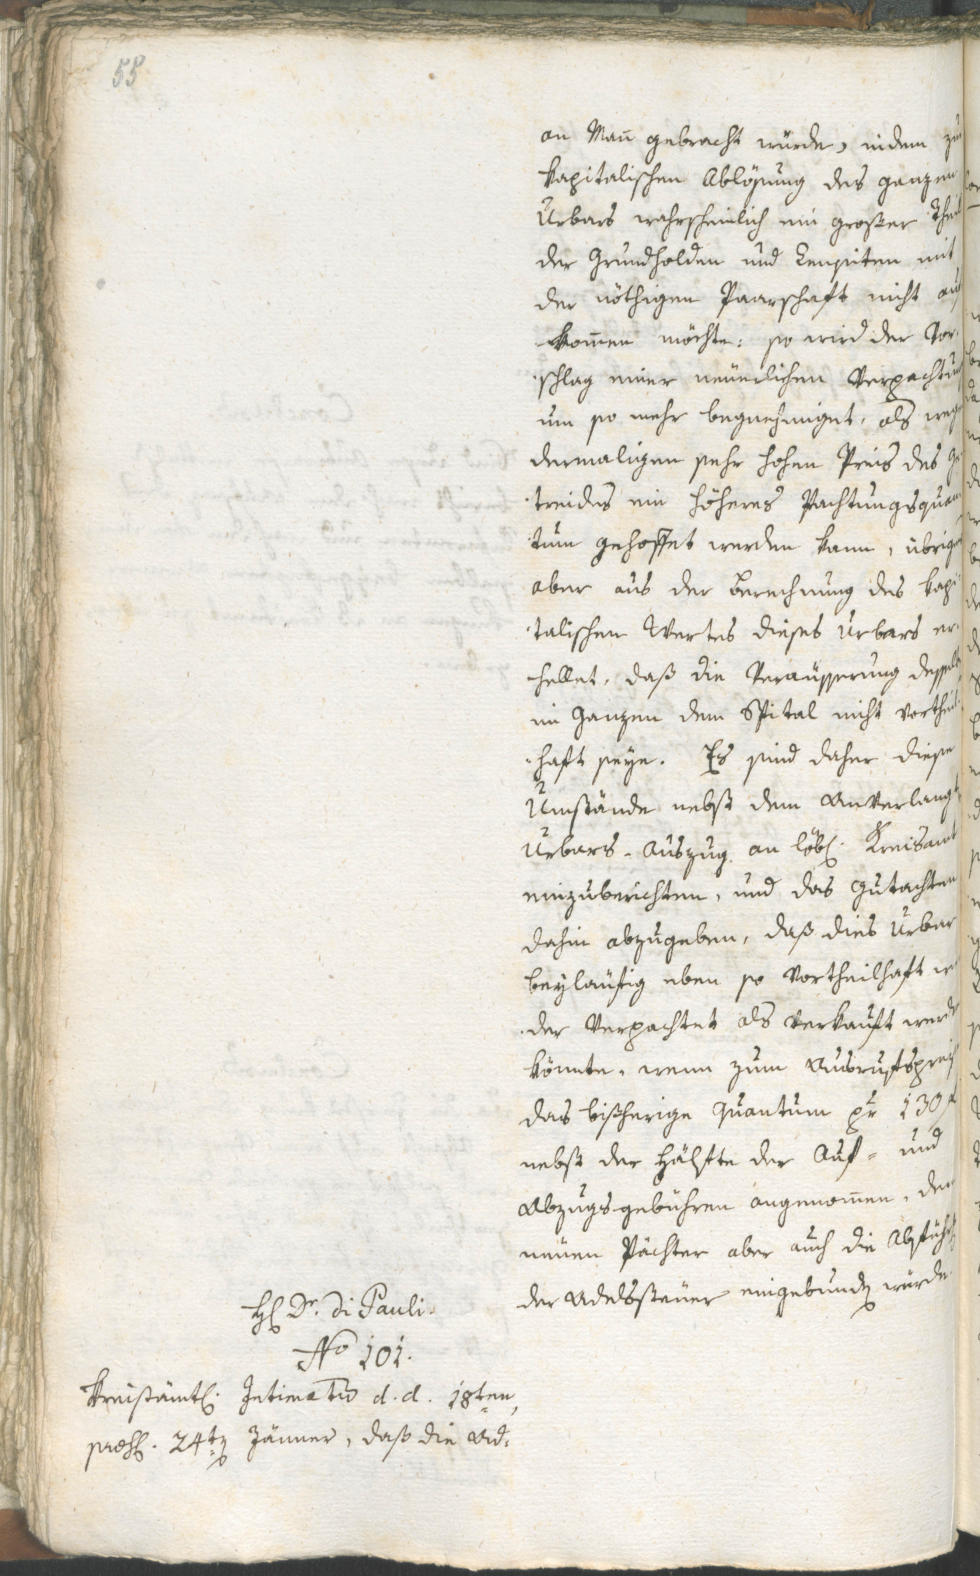 55
an Mañ gebracht würde, indem zur
kapitalischen Ablösung des ganzen
Urbars wahrscheinlich ein großer Theil
der Grundholden und Censiten mit
der nöthigen Paarschaft nicht auf
kom̄en möchte: so wird der Vor-
schlag einer neuerlichen Verpachtung
um so mehr begnehmiget, als wegen
dermaligen sehr hohen Preis des Ge-
treides ein höheres Pachtungsquan-
tum gehoffet werden kann, übrigens
aber aus der Berechnung des kapi-
talischen Wertes dieses Urbars er-
hellet, daß die Veräusserung desselben
im Ganzen dem Spital nicht vortheil-
haft seye. Es sind daher diese
Umstände nebst dem anverlangten
Urbars-Auszug an löbl. Kreisamt
einzuberichten, und das Gutachten
dahin abzugeben, daß dies Urbar
beyläufig eben so vortheilhaft wi-
der verpachtet als verkauft werden
könnte, wenn zum Ausrufspreis
das bisherige Quantum pr 130 f
nebst der Hälfte der Auf- und
Abzugsgebühren angenom̄en, dem
neuen Pächter aber auch die Abführung
der Adelssteuer eingebunden würde.
H. Dr. di Pauli.
No 101.
Kreisämtl. Intimatio d. d. 18ten,
praes. 24ten Jänner, daß die Ad-